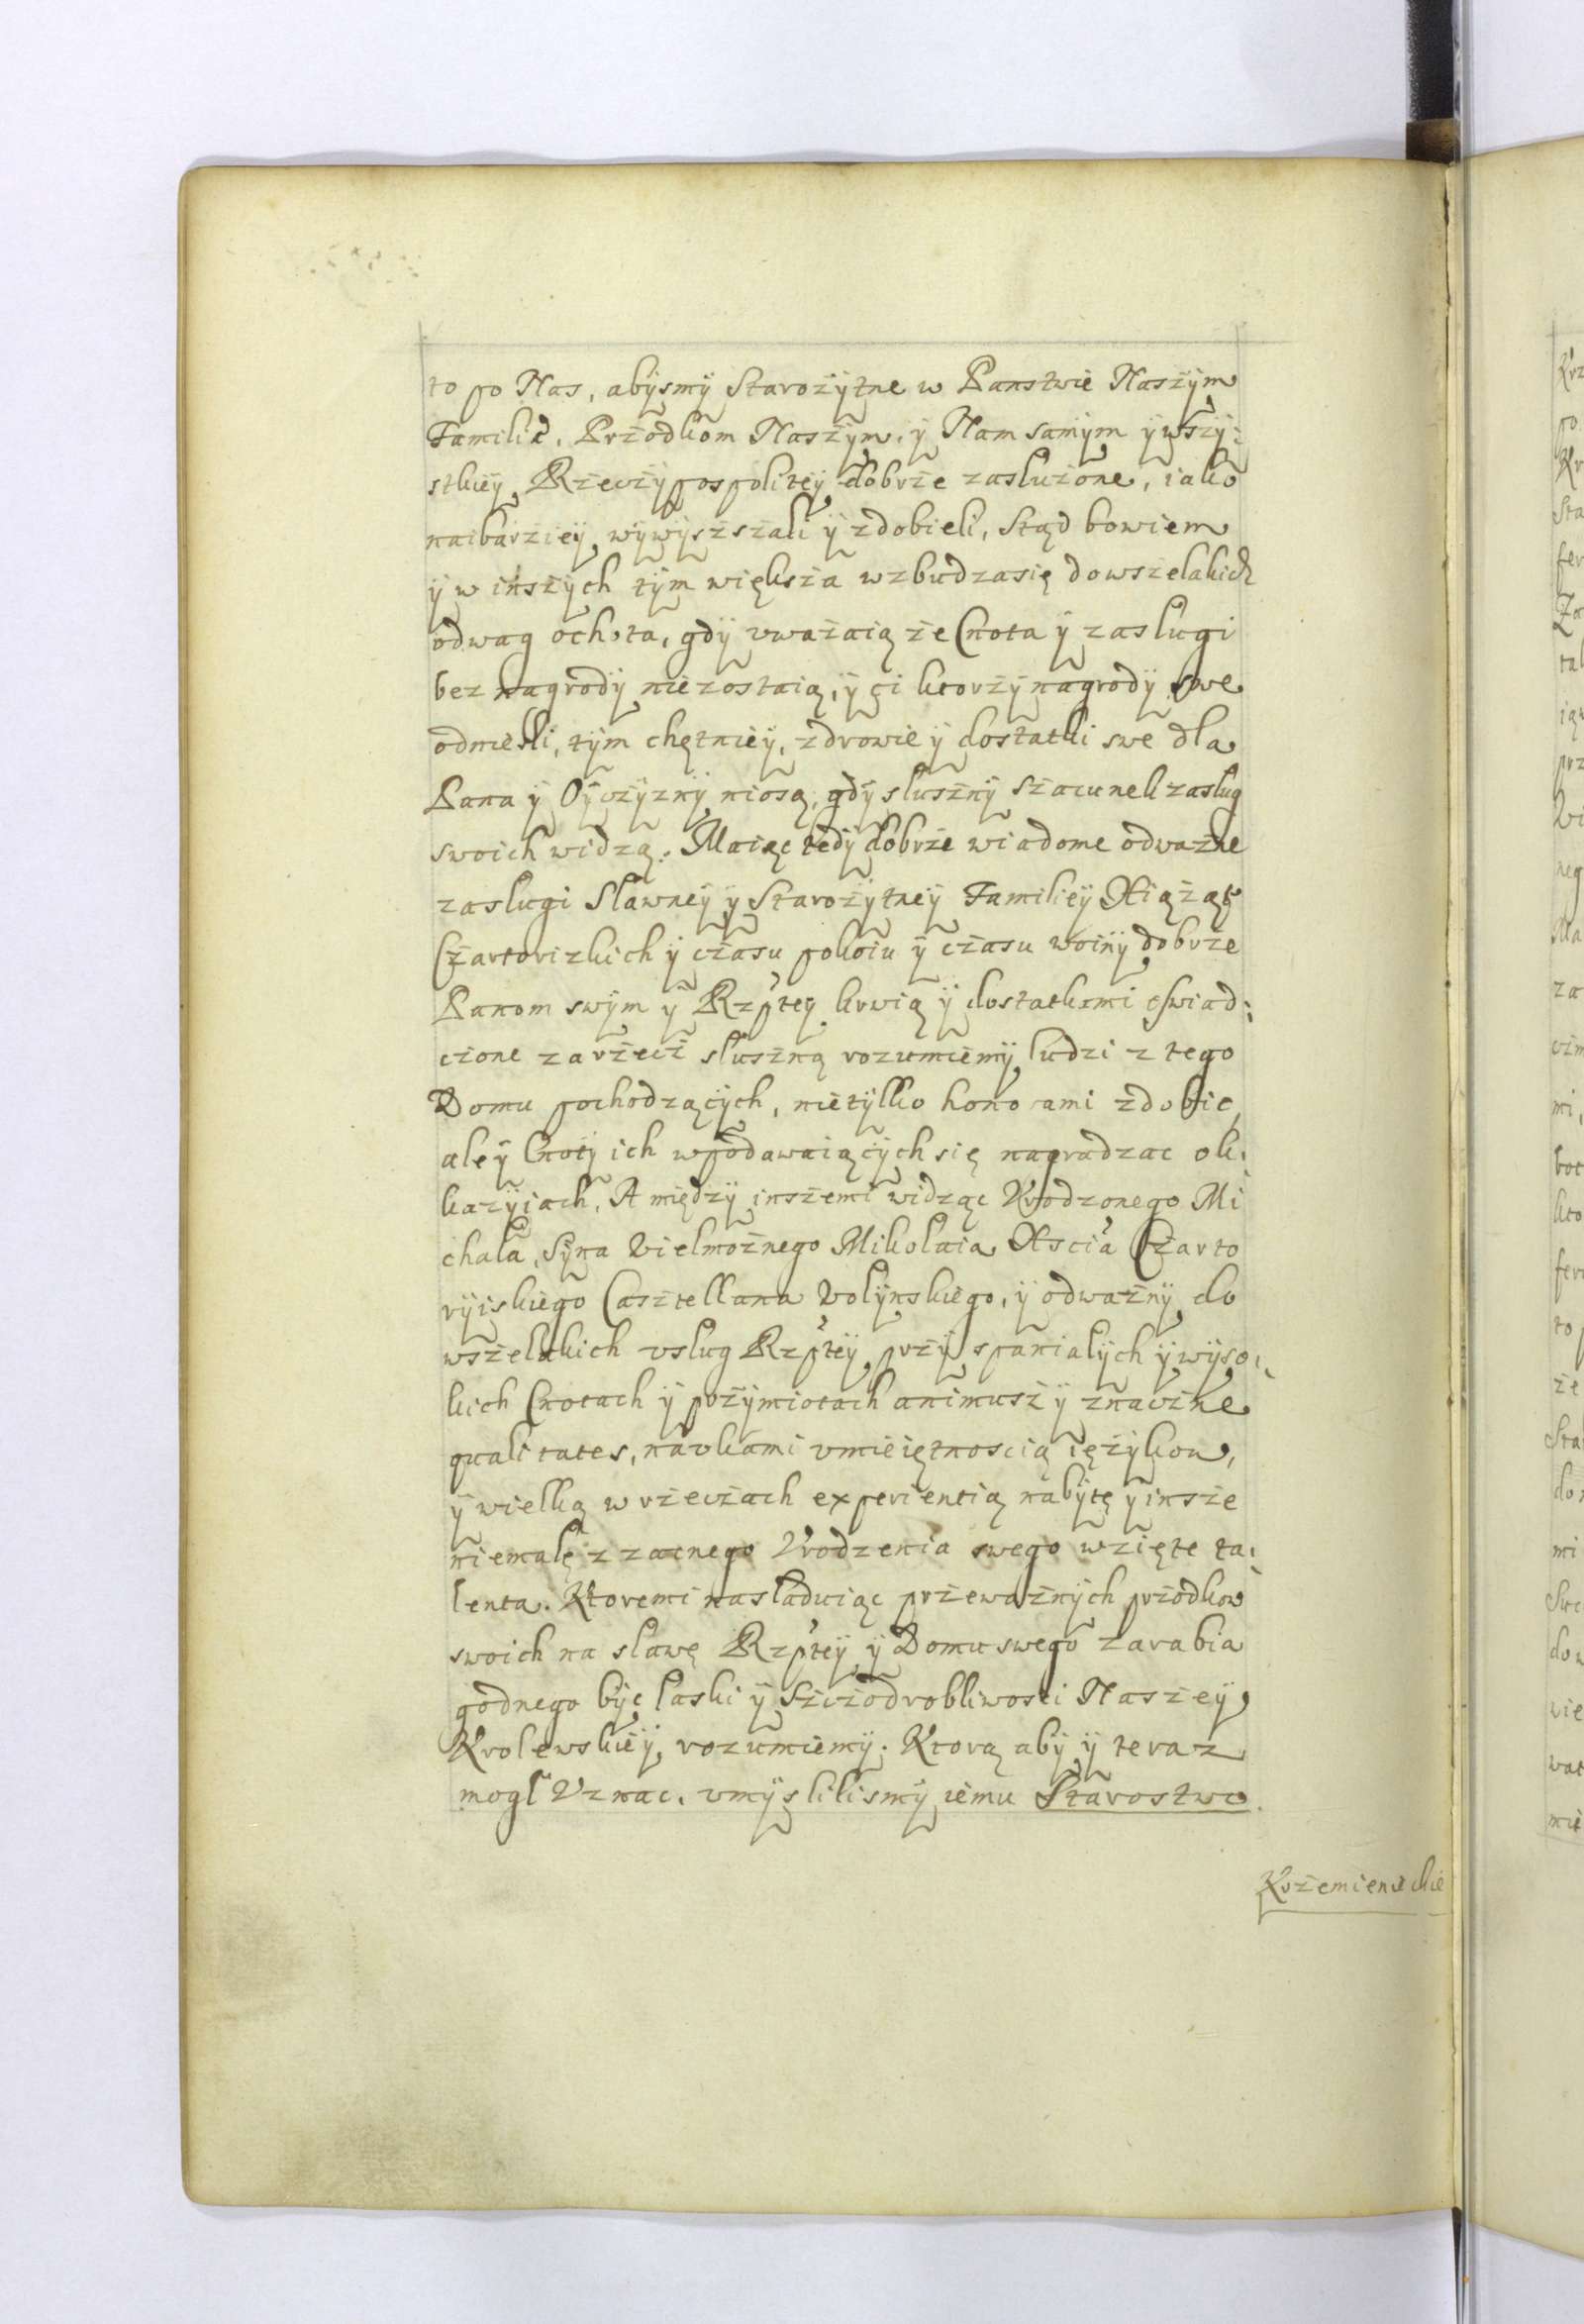 to po Nas, abÿsmÿ Starożÿtne w Panstwie Naszÿm
Familie, Przodkom Naszÿm, ÿ Nam samÿm ÿ wszÿ:
stkieÿ Rzeczÿpospoliteÿ dobrze zasłużone, iako
naibarzieÿ wÿwÿszszali ÿ zdobieli, Stąd bowiem
ÿ w inszÿch tÿm większa wzbudza się do wszelakich
odwag ochota, gdÿ uważaią że Cnota ÿ zasługi
bez nagrodÿ nie zostaią, ÿ ci ktorzÿ nagrodÿ swe
odniesli, tÿm chętnieÿ, zdrowie ÿ dostatki swe dla
Pana ÿ Oÿczÿznÿ niosą, gdÿ słusznÿ szacunek zasług
swoich widzą. Maiąc tedÿ dobrze wiadome odważne
zasługi Sławneÿ ÿ Starożÿtneÿ Familieÿ Xiążąt
Czartorizkich ÿ czasu pokoiu ÿ czasu woinÿ dobrze
Panom swÿm ÿ Rzpteÿ krwią ÿ dostatkami oświad:
czone za rzecz słuszną rozumiemÿ ludzi z tego
Domu pochodzącÿch, nie tÿlko honorami zdobic,
ale ÿ Cnotÿ ich w podawaiącÿch się nagradzac ok:
kazÿiach, A międzÿ inszemi widząc Urodzonego Mi
chała, Sÿna Wielmożnego Mikołaia Xscia Czarto
rÿiskiego Casztellana Wołÿnskiego, ÿ odważnÿ do
wszelakich usług Rzpteÿ przÿ spaniałÿch ÿ wÿso:
kich Cnotach ÿ pozÿmiotach animusz ÿ znaczne
qualitates, naukami umieiętnoscią ięzÿkow,
ÿ wielką w rzeczach experientią nabÿtę ÿ insze
niemałę z zacnego Urodzenia swego wzięte ta:
lenta. Ktoremi nasladuiąc przeważnÿch przodkow
swoich na sławę Rzpteÿ ÿ Domu swego zarabia
godnego bÿc łaski ÿ szczodrobliwosci Naszeÿ
Krolewskieÿ rozumiemÿ. Ktorą abÿ ÿ teraz
mogł Uznac, umÿslilismÿ iemu Starostwo
Krzemieneckie